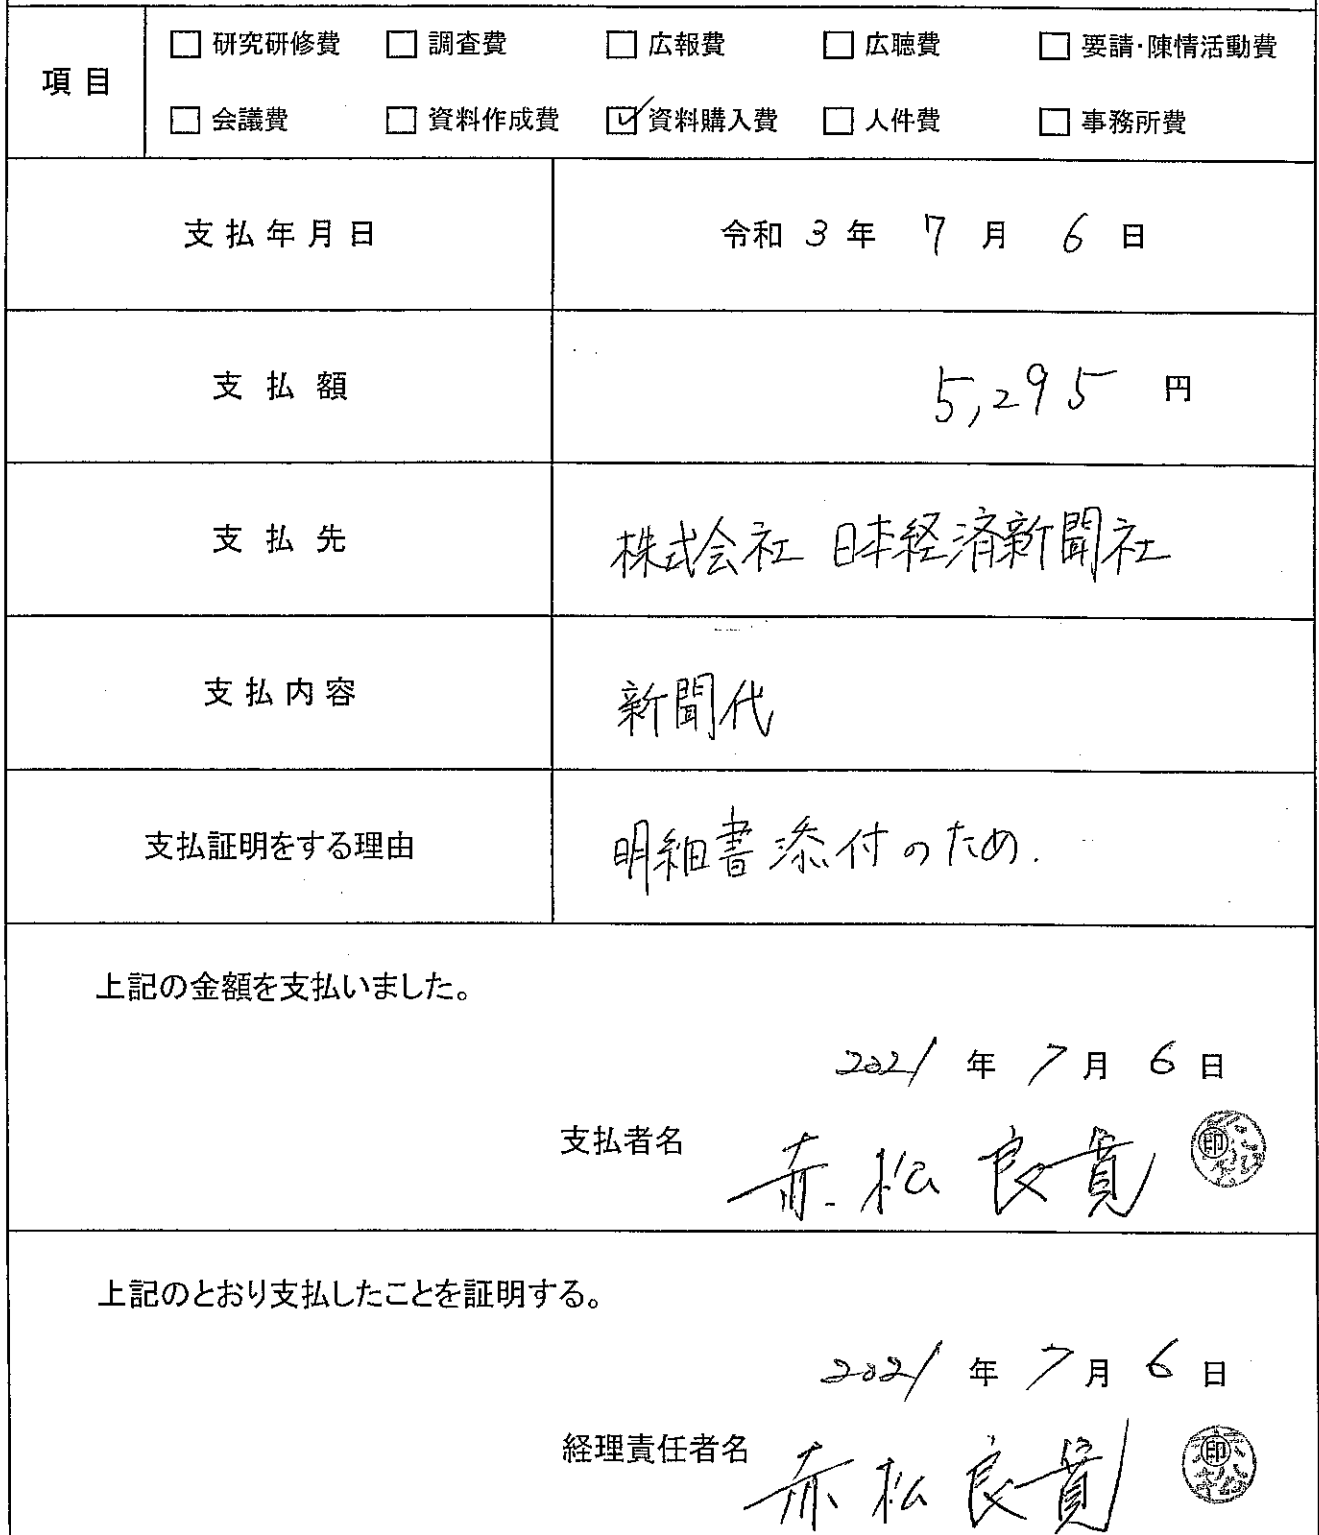 項目
□ 研究研修費 □ 調査費 □ 広報費 □ 広聴費 □ 要請・陳情活動費
□ 会議費 □ 資料作成費 ☑ 資料購入費 □ 人件費 □ 事務所費
支払年月日 令和 3 年 7 月 6 日
支払額 5,295 円
支払先 株式会社 日本経済新聞社
支払内容 新聞代
支払証明をする理由 明細書添付のため.
上記の金額を支払いました。
2021 年 7 月 6 日
支払者名 赤松良寛 印
上記のとおり支払したことを証明する。
2021 年 7 月 6 日
経理責任者名 赤松良寛 印